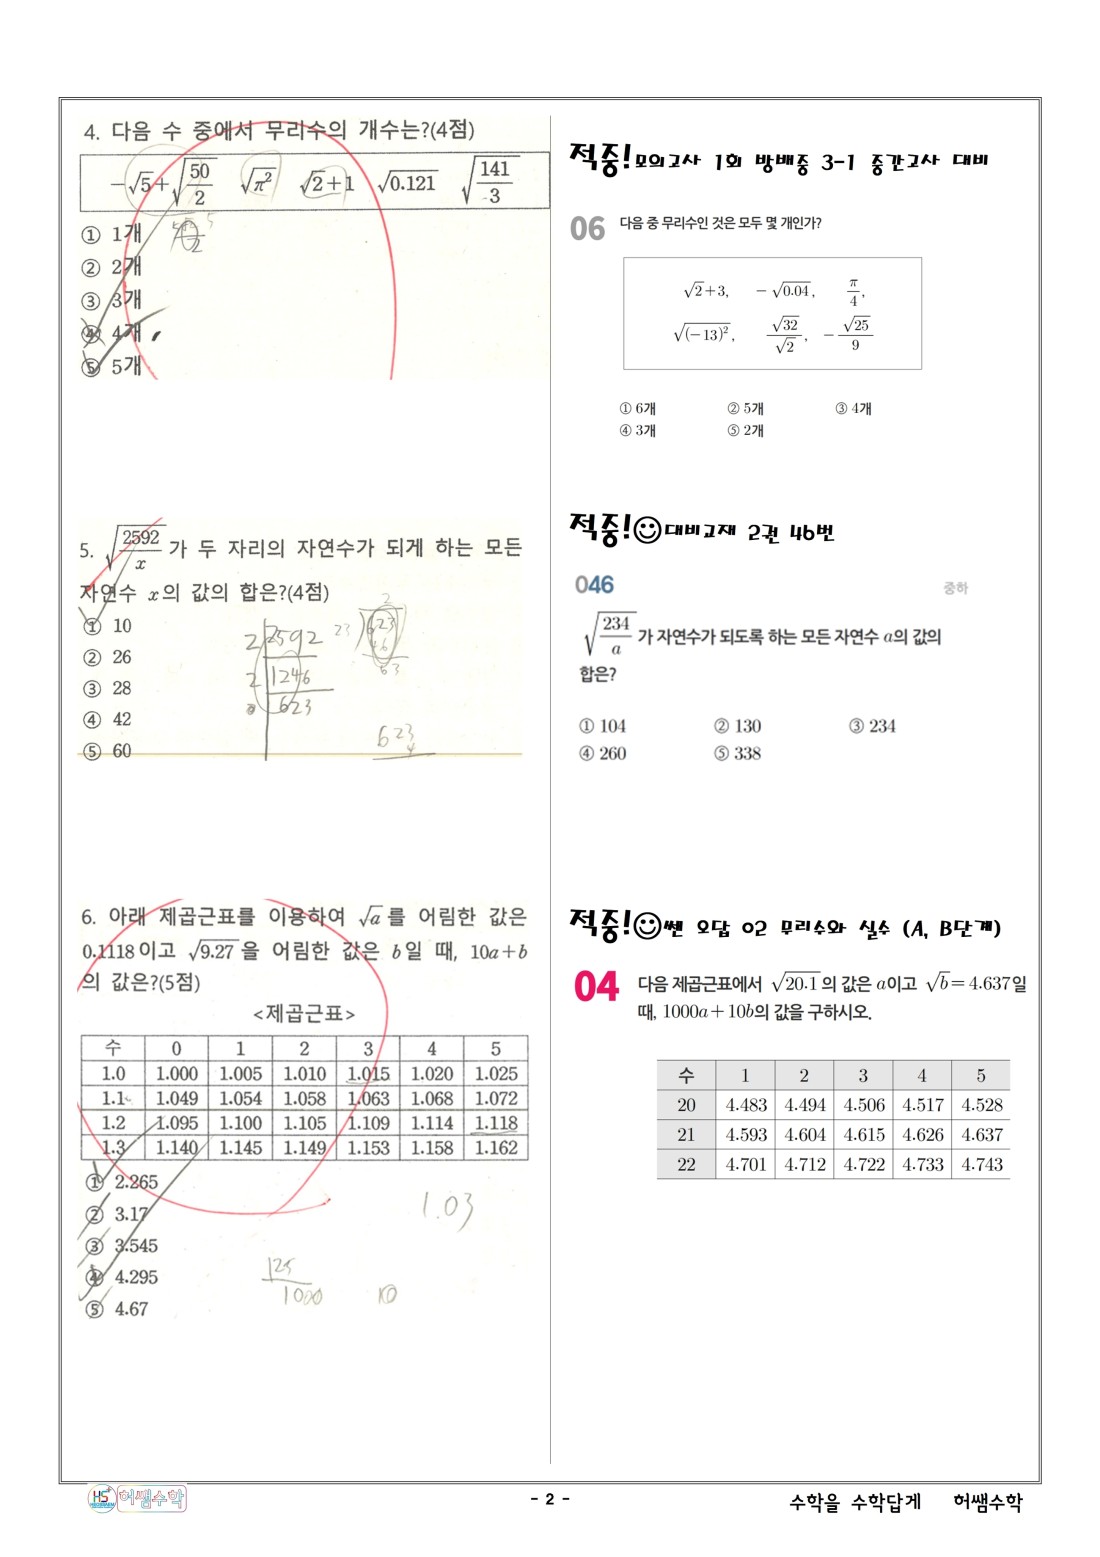 4. 다음 수 중에서 무리수의 개수는?(4점)
-√5+√(50/2) √(π²) √2+1 √0.121 √(141/3)
① 1개
② 2개
③ 3개
④ 4개
⑤ 5개
5. √(2592/x) 가 두 자리의 자연수가 되게 하는 모든
자연수 x의 값의 합은?(4점)
① 10
② 26
③ 28
④ 42
⑤ 60
2 2592
2 1246
623
23 623
2
46
63
623
4
6. 아래 제곱근표를 이용하여 √a 를 어림한 값은
0.1118이고 √9.27 을 어림한 값은 b일 때, 10a+b
의 값은?(5점)
<제곱근표>
수 0 1 2 3 4 5
1.0 1.000 1.005 1.010 1.015 1.020 1.025
1.1 1.049 1.054 1.058 1.063 1.068 1.072
1.2 1.095 1.100 1.105 1.109 1.114 1.118
1.3 1.140 1.145 1.149 1.153 1.158 1.162
① 2.265
② 3.17
③ 3.545
④ 4.295
⑤ 4.67
1.03
125
1000
10
적중!모의고사 1회 방배중 3-1 중간고사 대비
06 다음 중 무리수인 것은 모두 몇 개인가?
√2+3, -√0.04, π/4,
√((-13)²), √32/√2, -√25/9
① 6개 ② 5개 ③ 4개
④ 3개 ⑤ 2개
적중!대비교재 2권 46번
046 중하
√(234/a) 가 자연수가 되도록 하는 모든 자연수 a의 값의
합은?
① 104 ② 130 ③ 234
④ 260 ⑤ 338
적중!쎈 오답 02 무리수와 실수 (A, B단계)
04 다음 제곱근표에서 √20.1 의 값은 a이고 √b=4.637일
때, 1000a+10b의 값을 구하시오.
수 1 2 3 4 5
20 4.483 4.494 4.506 4.517 4.528
21 4.593 4.604 4.615 4.626 4.637
22 4.701 4.712 4.722 4.733 4.743
HS 허쌤수학
- 2 -
수학을 수학답게 허쌤수학